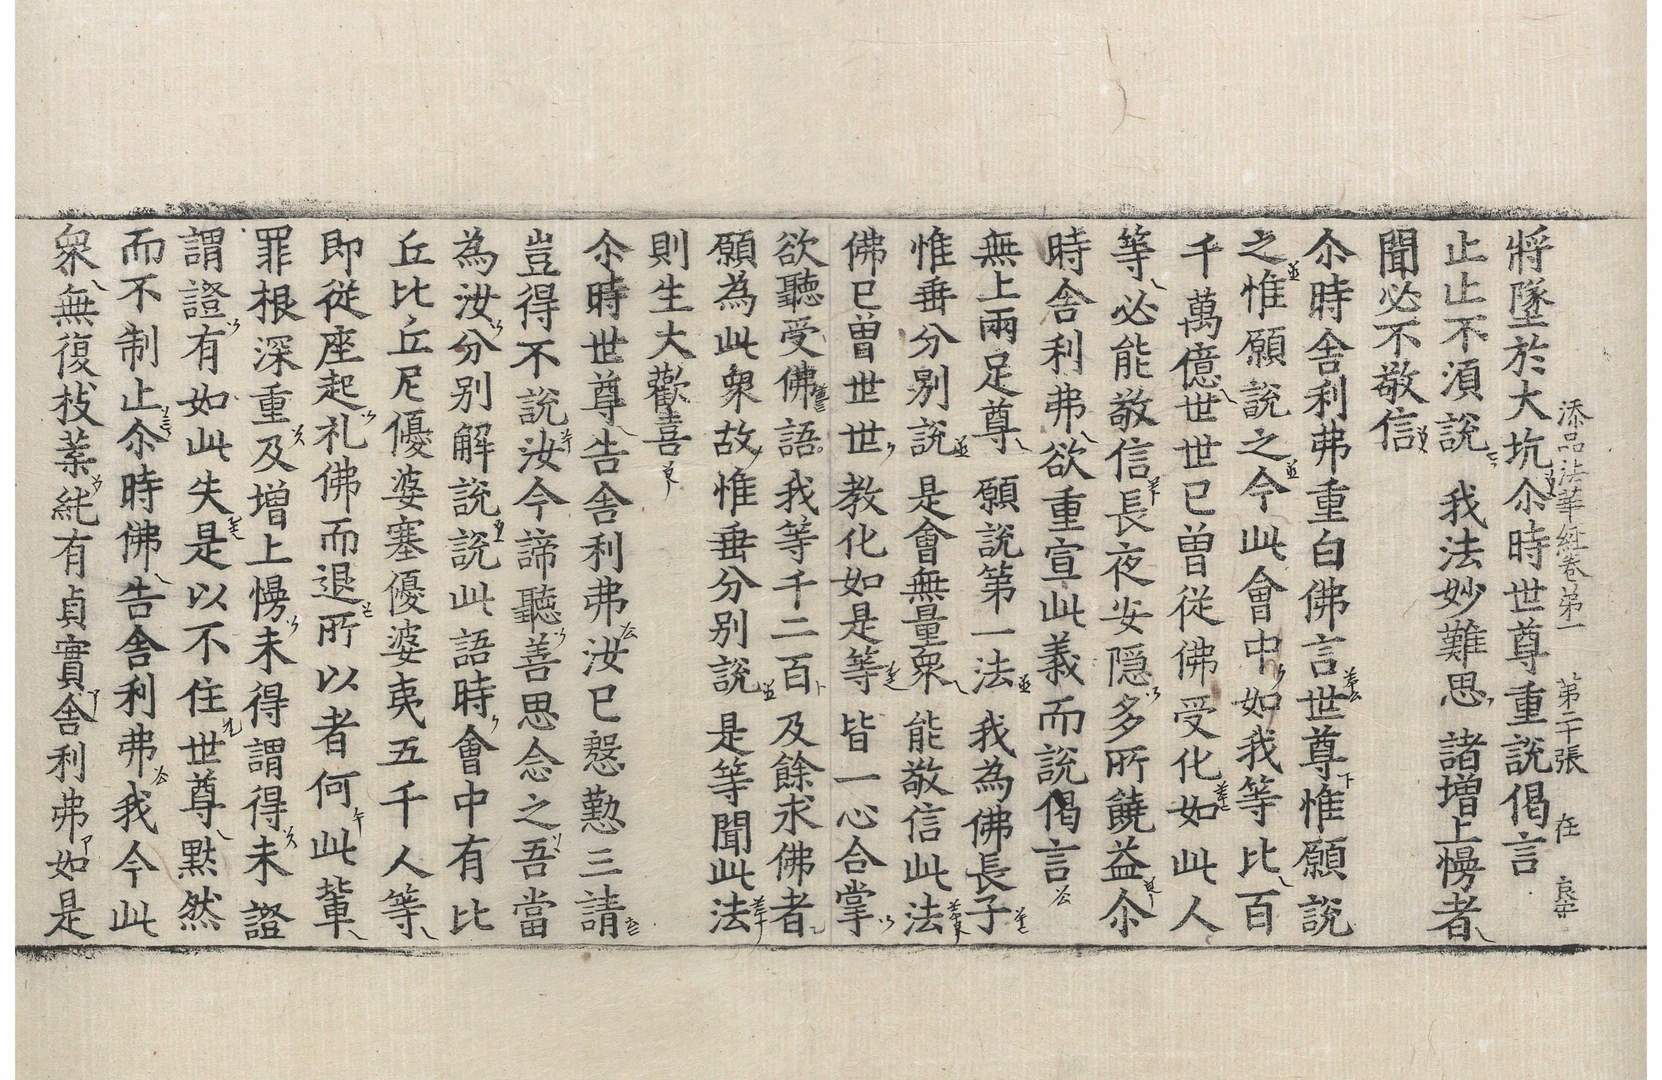 添品法華経卷第一 第二十張 在
將墜於大坑尒時世尊重說偈言
止止不湏說 我法妙難思 諸增上慢者
聞必不敬信
尒時舍利弗重白佛言世尊惟願說
之惟願說之今此會中如我等比百
千萬億世世已曽從佛受化如此人
等必能敬信長夜安隠多所饒益尒
時舍利弗欲重宣此義而說偈言
無上兩足尊 願說第一法 我為佛長子
惟垂分别說 是會無量衆 能敬信此法
佛已曽世世 教化如是等 皆一心合掌
欲聽受佛語 我等千二百 及餘求佛者
願為此衆故 惟垂分别說 是等聞此法
則生大歡喜
尒時世尊告舍利弗汝已慇懃三請
豈得不說汝今諦聽善思念之吾當
為汝分别解說說此語時會中有比
丘比丘尼優婆塞優婆夷五千人等
即從座起礼佛而退所以者何此輩
罪根深重及增上慢未得謂得未證
謂證有如此失是以不住世尊黙然
而不制止尒時佛告舍利弗我今此
衆無復枝葉純有貞實舍利弗如是